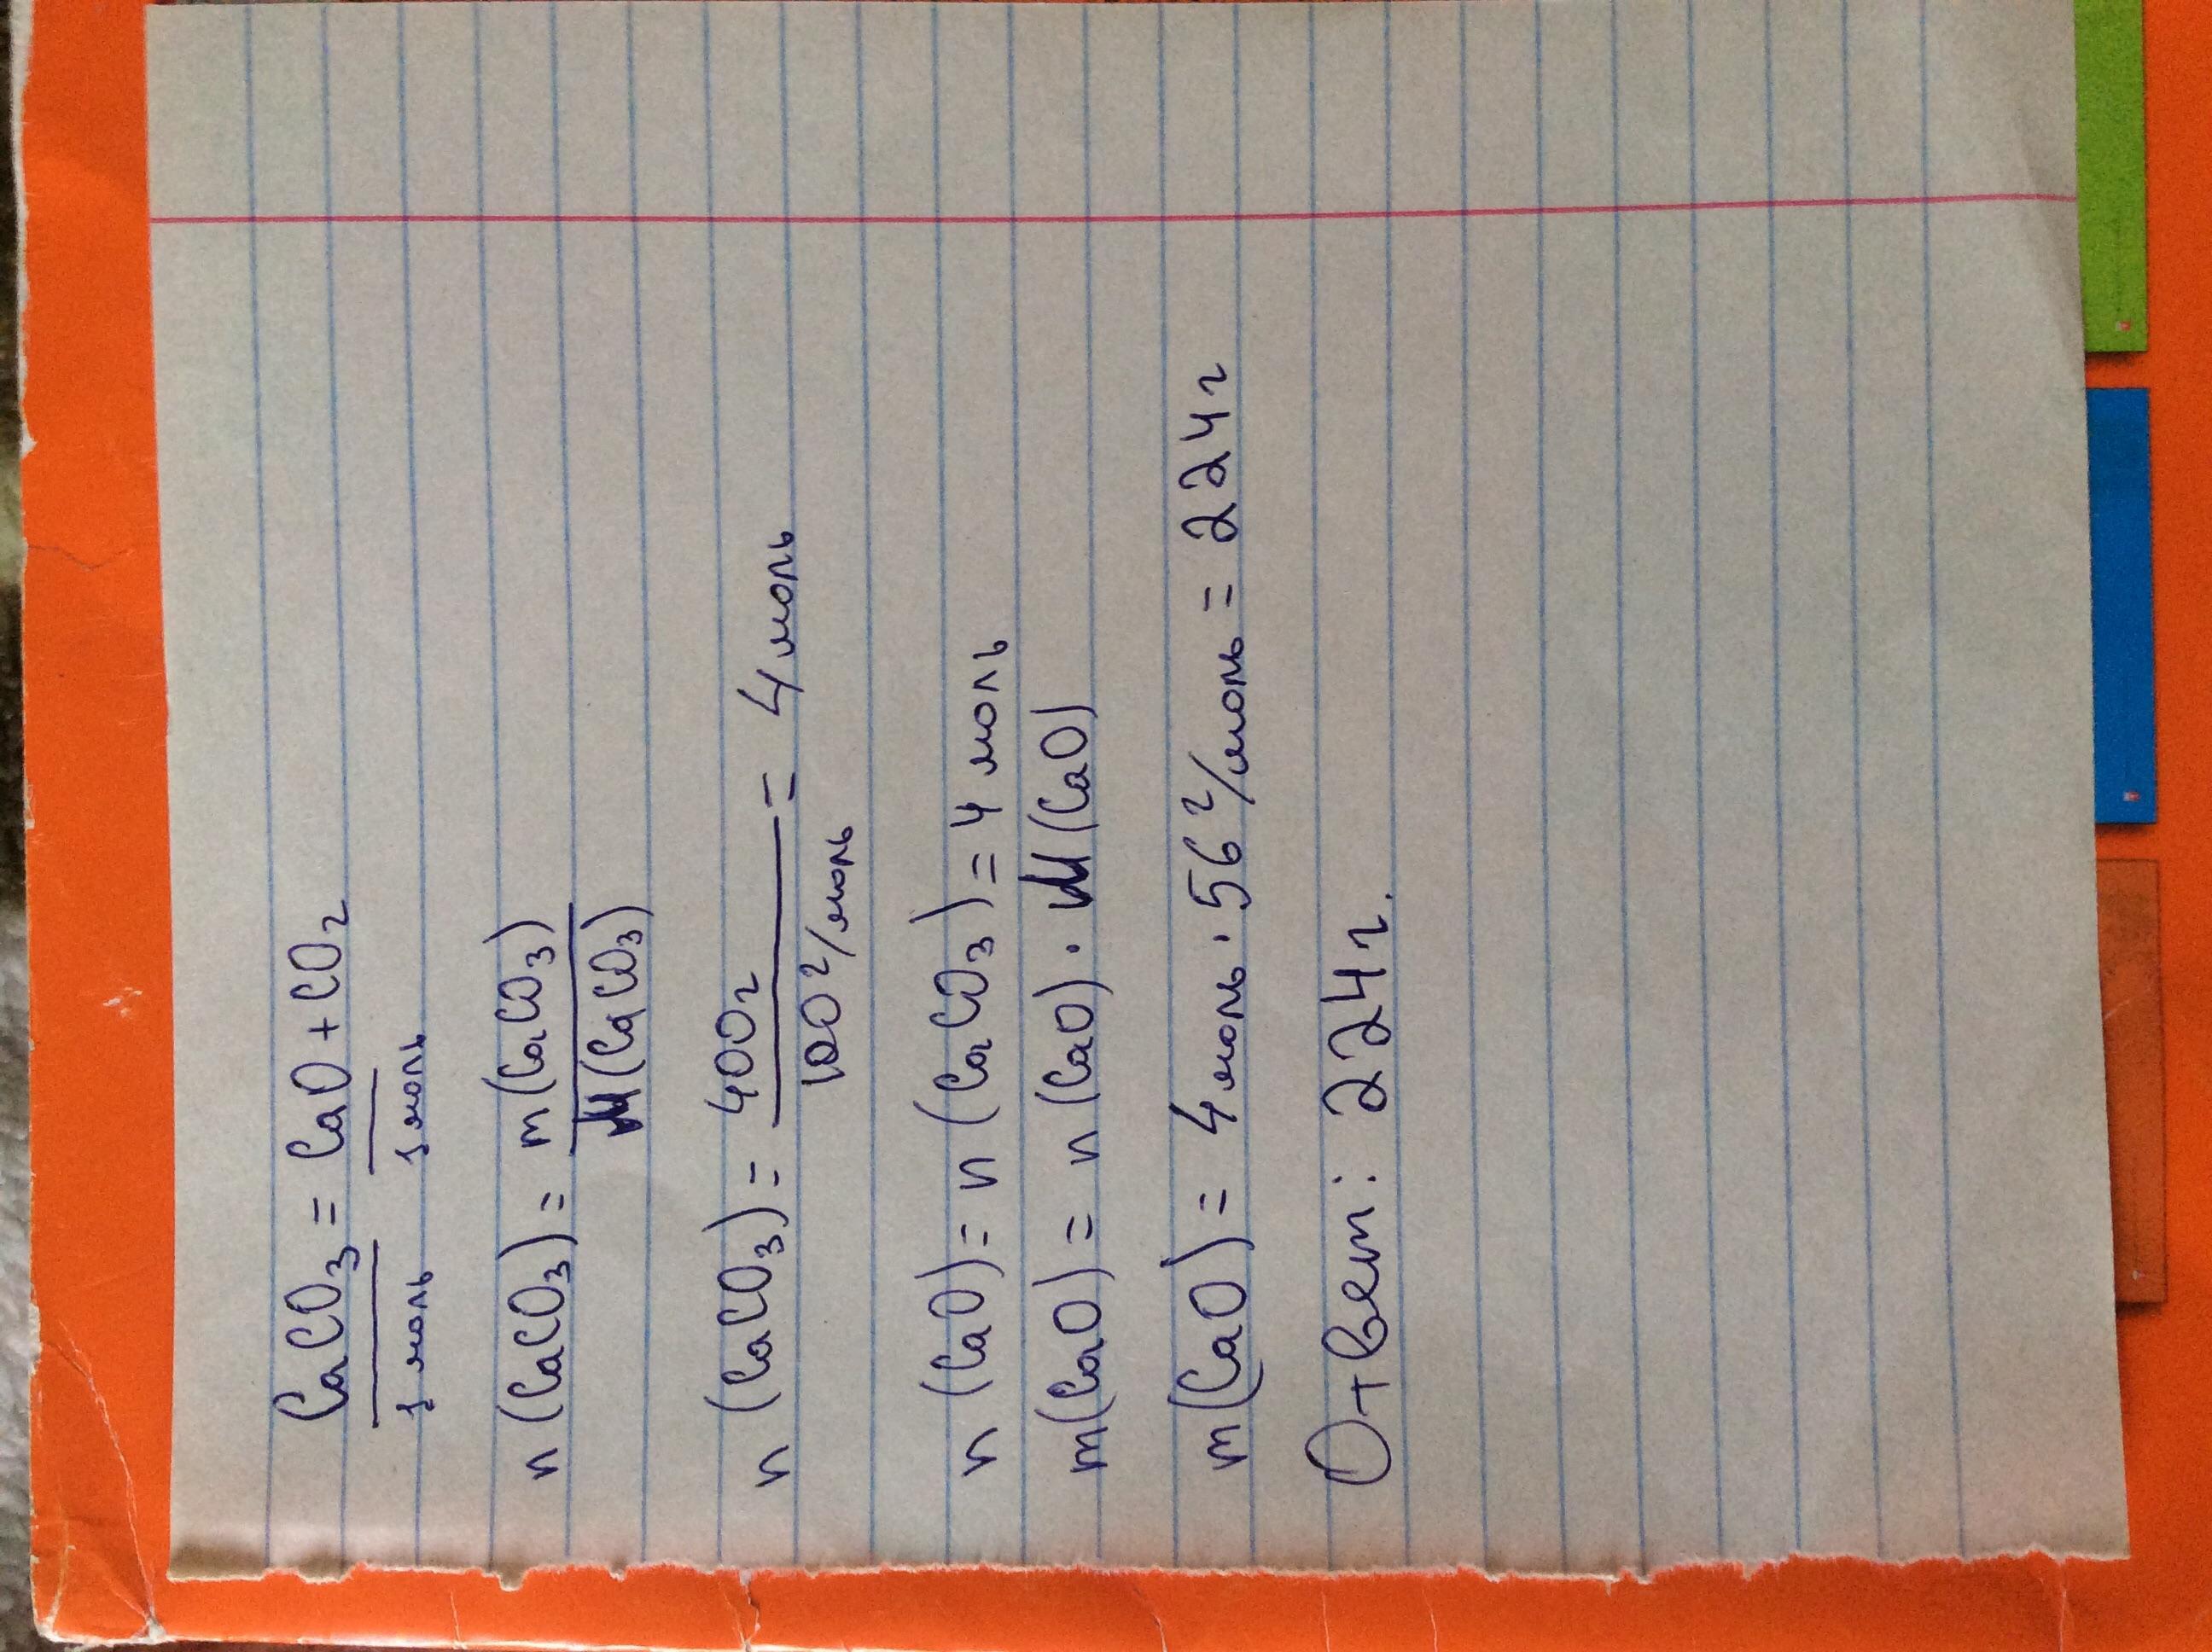 CaCO₃ = CaO + CO₂
1 моль 1 моль
n (CaCO₃) = m (CaCO₃)
M (CaCO₃)
n (CaCO₃) = 400г = 4 моль
100 г/моль
n (CaO) = n (CaCO₃) = 4 моль
m(CaO) = n (CaO) · M (CaO)
m(CaO) = 4 моль · 56 г/моль = 224г
Ответ: 224г.